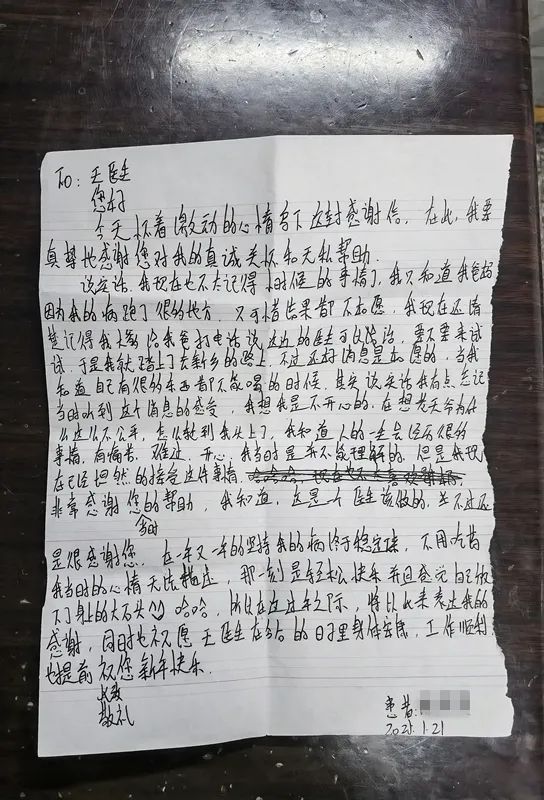 To: 王医生
您好
今天怀着激动的心情写下这封感谢信. 在此, 我要
真挚地感谢您对我的真诚关怀和无私帮助.
说实话, 我现在也不太记得小时候的事情了, 我只知道我爸妈
因为我的病跑了很的地方, 只可惜结果都不如愿, 我现在还清
楚记得我大爹给我爸打电话说这边的医生可以治, 要不要来试
试, 于是我就踏上了去新乡的路上, 不过还好消息是如愿的, 当我
知道自己有很的东西都不能喝的时候, 其实说实话我有点忘记
当时听到这个消息的感受, 我想我是不开心的, 在想老天爷为什
么这么不公平, 怎么轮到我头上了, 我知道人的一生会经历很的
事情, 有痛苦. 难过. 开心, 我当时是并不能理解的, 但是我现
在已经坦然的接受这件事情.
非常感谢您的帮助, 我知道, 这是一个医生该做的, 当时不过还
是很感谢您, 在一年又一年的坚持我的病终于稳定, 不用吃药
我当时的心情无法描述, 那一刻是轻松快乐并且感觉自己放
下了身上的大石头 哈哈, 所以在这过年之际, 特以此来表达我的
感谢, 同时也祝愿王医生在今后的日子里身体安康, 工作顺利.
也提前祝您新年快乐.
此致
敬礼
患者:
2025.1.21